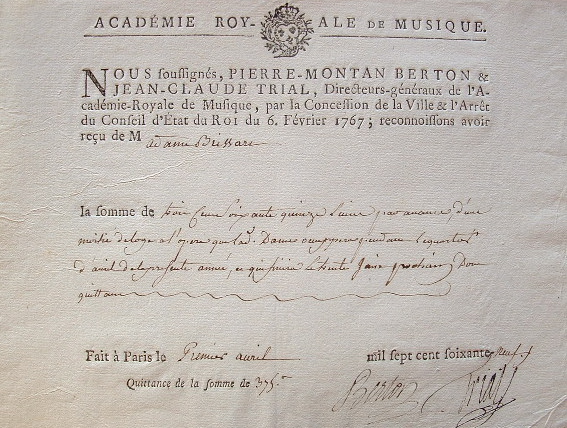 ACADÉMIE ROY- ALE DE MUSIQUE.
NOUS soussignés, PIERRE-MONTAN BERTON &
JEAN-CLAUDE TRIAL, Directeurs-généraux de l'A-
cadémie-Royale de Musique, par la Concession de la Ville & l'Arrêt
du Conseil d'État du ROI du 6. Février 1767; reconnoissons avoir
reçu de M
adame Brissart
la somme de trois Cent Soixante quinze Livres par avance, d'une
moitié de loge a l'opera que lad. Dame occuppera pendant le quartier
d'avril de la presente année, et qui finira le trente Juin prochain Dont
quittance
Fait à Paris le Premier avril mil sept cent soixante neuf.
Quittance de la somme de 375
Berton Trial